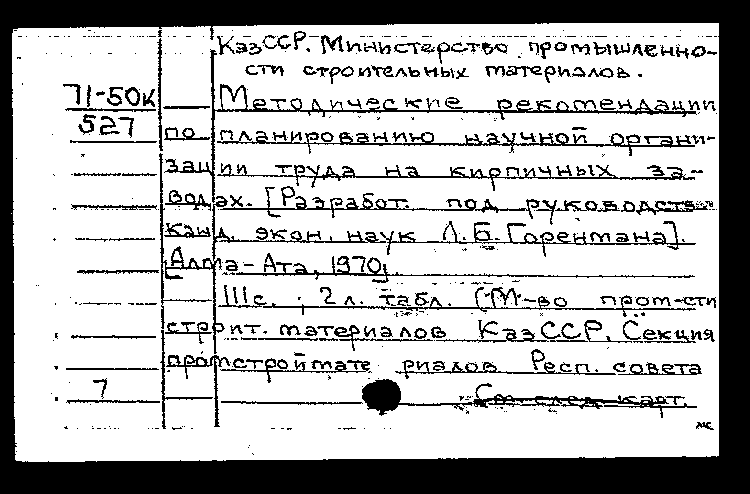 КазССР. Министерство промышленно-
сти строительных материалов.
71-50к Методические рекомендации
527 по планированию научной органи-
зации труда на кирпичных за-
водах. [Разработ. под руководств
канд. экон. наук Л.Б. Горентмана].
[Алма-Ата, 1970].
111с. ; 2 л. табл. (М-во пром-сти
строит. материалов КазССР. Секция
промстроймате риалов Респ. совета
7 См. след. карт.
МС